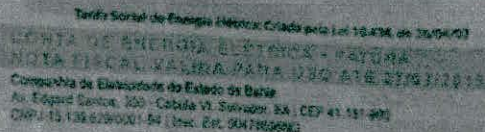 Tarifa Social de Energia Elétrica: Criada pela Lei 10.438, de 26/04/02
CONTA DE ENERGIA ELÉTRICA -
NOTA FISCAL VÁLIDA PARA USO ATÉ
Companhia de Eletricidade do Estado da Bahia
Av. Edgard Santos, 300 - Cabula VI, Salvador, BA | CEP 41.181-900
CNPJ 15.139.629/0001-94 | Insc. Est.